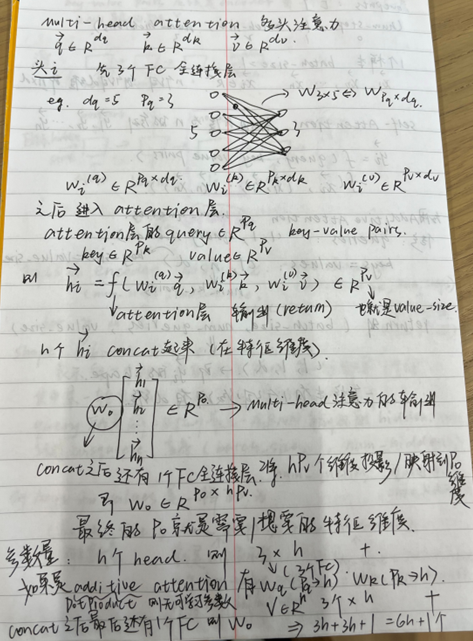 multi-head attention 多头注意力
q⃗ ∈ R^dq k⃗ ∈ R^dk v⃗ ∈ R^dv.
头i 先3个FC全连接层
eg. dq=5 Pq=3 5 3 W3×5 ⇔ WPq×dq.
Wi^(q) ∈ R^Pq×dq. Wi^(k) ∈ R^Pk×dk Wi^(v) ∈ R^Pv×dv
之后进入attention层.
attention层的query ∈ R^Pq key-value pairs.
key ∈ R^Pk value ∈ R^Pv
则 h⃗i = f(Wi^(q) q⃗, Wi^(k) k⃗, Wi^(v) v⃗) ∈ R^Pv
attention层 输出(return) 也就是value-size.
h个 h⃗i concat起来 (在特征维度).
Wo [h⃗1 h⃗2 ⋮ h⃗h] ∈ R^Po → multi-head注意力的输出
concat之后还有1个FC全连接层. hPv个维度投影/映射到Po维度
Wo ∈ R^Po×hPv.
最终的Po就是需要/想要的特征维度.
参数量: h个head. 则 3×h +
(3个FC)
如果是additive attention 有Wq(Pq→h) Wk(Pk→h)
DotProduct 则无可学参数 V∈R^h 3个×h +
concat之后最后还有1个FC 则Wo ⇒ 3h+3h+1 = 6h+1个